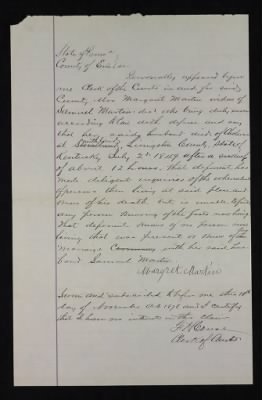 State of Penna
County of Erie ss.
Personally appeared before
me Clerk of the Courts in and for said
County Mrs Margaret Martin widow of
Samuel Martin dec'd who being duly sworn
according to law doth depose and say
that her said husband died of Cholera
at Smithland
Livingston County State of
Kentucky July 2d 1849 after a sickness
of about 12 hours. That deponent has
made diligent inquiries of the whereabouts
of persons then living at said place and
now of his death but is unable to find
any person knowing of the facts now living
that deponent knows of no person now
living that was present or knew of the
marriage with her said hus-
band Samuel Martin.
Margret Martin
Sworn and subscribed to before me this 10th
day of November A.D. 1879 and I certify
that I have no interest in this claim
Clerk of Courts